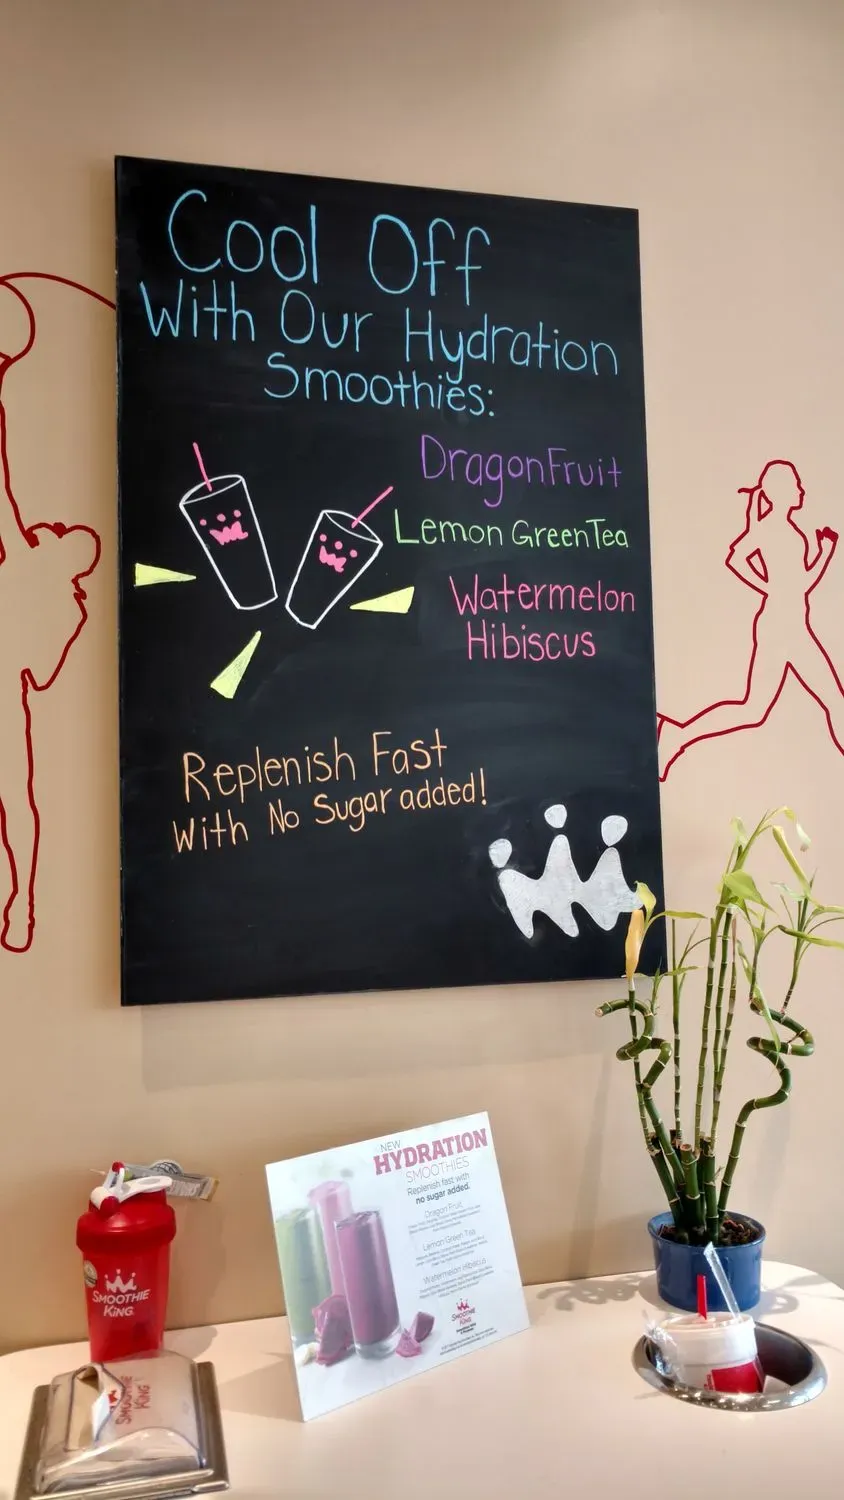 Cool Off
With Our Hydration
Smoothies:
DragonFruit
Lemon GreenTea
Watermelon
Hibiscus
Replenish Fast
With No Sugar added!
NEW
HYDRATION
SMOOTHIES
Replenish fast with
no sugar added.
Dragon Fruit
Lemon Green Tea
Watermelon Hibiscus
SMOOTHIE
KING
SMOOTHIE
KING
SMOOTHIE
KING